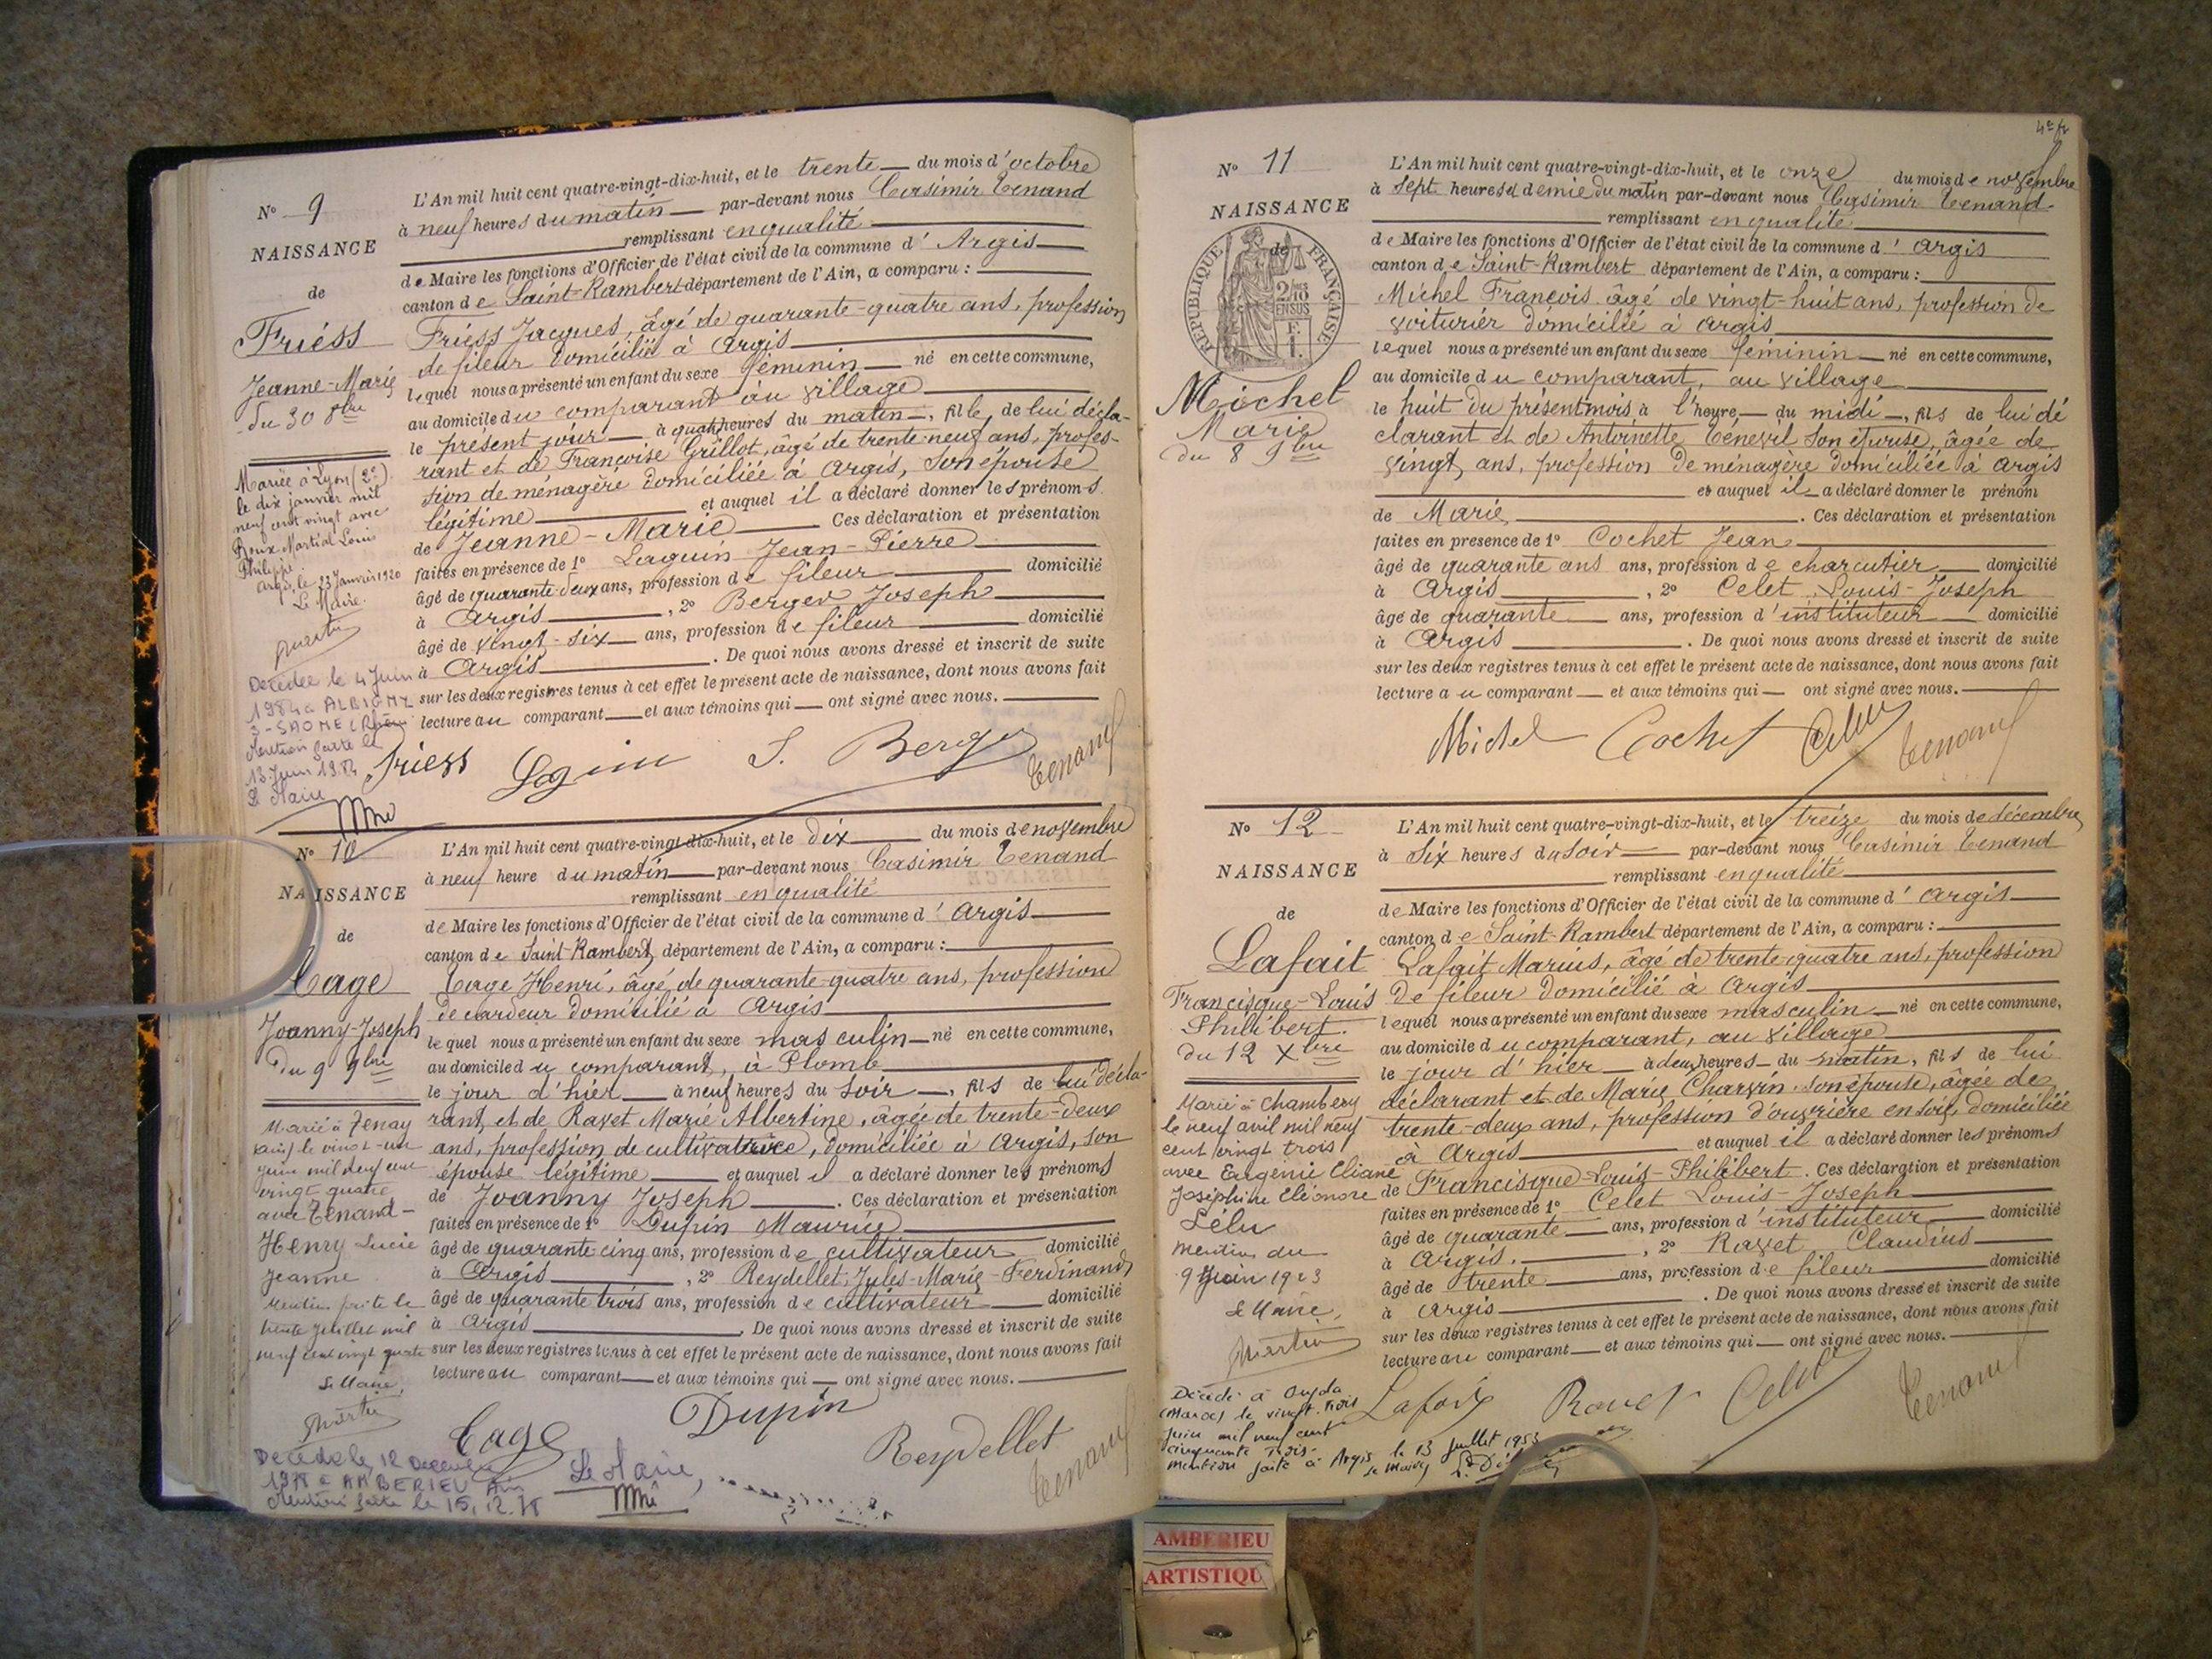 N° 9
NAISSANCE
de
Friéss
Jeanne-Marie
du 30 8bre
Mariée à Lyon (2e)
le dix janvier mil
neuf cent vingt avec
Roux Martial Louis
Philippe
Argis, le 23 Janvier 1920
Le Maire.
Décédée le 4 Juin
1984 à ALBIGNY
S-SAONE (Rhône)
Mention faite le
13 Juin 1984
Le Maire
L'An mil huit cent quatre-vingt-dix-huit, et le trente du mois d'octobre
à neuf heures du matin par-devant nous Casimir Tenand
remplissant en qualité
de Maire les fonctions d'Officier de l'état civil de la commune d'Argis
canton de Saint-Rambert département de l'Ain, a comparu :
Friéss Jacques, âgé de quarante-quatre ans, profession
de fileur domicilié à Argis
lequel nous a présenté un enfant du sexe féminin né en cette commune,
au domicile du comparant au village
le présent jour à quatre heures du matin, fille de lui décla-
rant et de Françoise Grillot, âgée de trente neuf ans, profes-
sion de ménagère domiciliée à Argis, son épouse
légitime et auquel il a déclaré donner les prénoms
de Jeanne-Marie Ces déclaration et présentation
faites en présence de 1° Laguin Jean-Pierre
âgé de quarante-deux ans, profession de fileur domicilié
à Argis, 2° Berger Joseph
âgé de vingt-six ans, profession de fileur domicilié
à Argis. De quoi nous avons dressé et inscrit de suite
sur les deux registres tenus à cet effet le présent acte de naissance, dont nous avons fait
lecture au comparant et aux témoins qui ont signé avec nous.
Friess Laguin J. Berger Tenand
N° 10
NAISSANCE
de
Cage
Joanny-Joseph
du 9 9bre
Marié à Tenay
Ain, le vingt-un
juin mil neuf cent
vingt quatre
avec Tenand-
Henry Lucie
Jeanne
Mention faite le
trente juillet mil
neuf cent vingt quatre
Le Maire,
Martin
Décédé le 12 Décembre
1978 à AMBERIEU Ain
Mention faite le 15.12.78
Le Maire,
L'An mil huit cent quatre-vingt-dix-huit, et le dix du mois de novembre
à neuf heure du matin par-devant nous Casimir Tenand
remplissant en qualité
de Maire les fonctions d'Officier de l'état civil de la commune d'Argis
canton de Saint-Rambert, département de l'Ain, a comparu :
Cage Henri, âgé de quarante-quatre ans, profession
de cardeur domicilié à Argis
lequel nous a présenté un enfant du sexe masculin né en cette commune,
au domicile du comparant, à Plomb
le jour d'hier à neuf heures du soir, fils de lui décla-
rant, et de Ravet Marie Albertine, âgée de trente-deux
ans, profession de cultivatrice, domiciliée à Argis, son
épouse légitime et auquel il a déclaré donner les prénoms
de Joanny Joseph. Ces déclaration et présentation
faites en présence de 1° Dupin Maurice
âgé de quarante-cinq ans, profession de cultivateur domicilié
à Argis, 2° Reydellet, Jules-Marie-Ferdinand
âgé de quarante trois ans, profession de cultivateur domicilié
à Argis. De quoi nous avons dressé et inscrit de suite
sur les deux registres tenus à cet effet le présent acte de naissance, dont nous avons fait
lecture au comparant et aux témoins qui ont signé avec nous.
Cage Dupin Reydellet Tenand
N° 11
NAISSANCE
de
REPUBLIQUE FRANÇAISE
2/10
EN SUS
Michel
Marie
du 8 9bre
L'An mil huit cent quatre-vingt-dix-huit, et le onze du mois de novembre
à sept heures et demie du matin par-devant nous Casimir Tenand
remplissant en qualité
de Maire les fonctions d'Officier de l'état civil de la commune d'Argis
canton de Saint-Rambert département de l'Ain, a comparu :
Michel François âgé de vingt-huit ans, profession de
voiturier domicilié à Argis
lequel nous a présenté un enfant du sexe féminin né en cette commune,
au domicile du comparant, au village
le huit du présent mois à l'heure du midi, fils de lui dé
clarant et de Antoinette son épouse, âgée de
vingt ans, profession de ménagère domiciliée à Argis
et auquel il a déclaré donner le prénom
de Marie. Ces déclaration et présentation
faites en presence de 1° Cochet Jean
âgé de quarante ans ans, profession de charcutier domicilié
à Argis, 2° Celet Louis-Joseph
âgé de quarante ans, profession d'instituteur domicilié
à Argis. De quoi nous avons dressé et inscrit de suite
sur les deux registres tenus à cet effet le présent acte de naissance, dont nous avons fait
lecture au comparant et aux témoins qui ont signé avec nous.
Michel Cochet Celet Tenand
N° 12
NAISSANCE
de
Lafait
Francisque-Louis
Philibert.
du 12 Xbre
Marié à Chambéry
le neuf avril mil neuf
cent vingt trois
avec Eugenie Eliane
Joséphine Eléonore
Lélu
Mention du
9 Juin 1923
Le Maire,
Martin
Décédé à Oujda
(Maroc) le vingt-trois
juin mil neuf cent
cinquante trois-
mention faite à Argis le 13 Juillet 1953
Le Maire,
L'An mil huit cent quatre-vingt-dix-huit, et le treize du mois de décembre
à six heures du soir par-devant nous Casimir Tenand
remplissant en qualité
de Maire les fonctions d'Officier de l'état civil de la commune d'Argis
canton de Saint-Rambert département de l'Ain, a comparu :
Lafait Marius, âgé de trente-quatre ans, profession
de fileur domicilié à Argis
lequel nous a présenté un enfant du sexe masculin né en cette commune,
au domicile du comparant, au village
le jour d'hier à deux heures du matin, fils de lui
déclarant et de Marie Charvin son épouse, âgée de
trente-deux ans, profession d'ouvrière en soie, domiciliée
à Argis et auquel il a déclaré donner les prénoms
de Francisque-Louis-Philibert. Ces déclaration et présentation
faites en présence de 1° Celet Louis-Joseph
âgé de quarante ans, profession d'instituteur domicilié
à Argis, 2° Ravet Claudius
âgé de trente ans, profession de fileur domicilié
à Argis. De quoi nous avons dressé et inscrit de suite
sur les deux registres tenus à cet effet le présent acte de naissance, dont nous avons fait
lecture au comparant et aux témoins qui ont signé avec nous.
Lafait Ravet Celet Tenand
AMBERIEU
ARTISTIQU